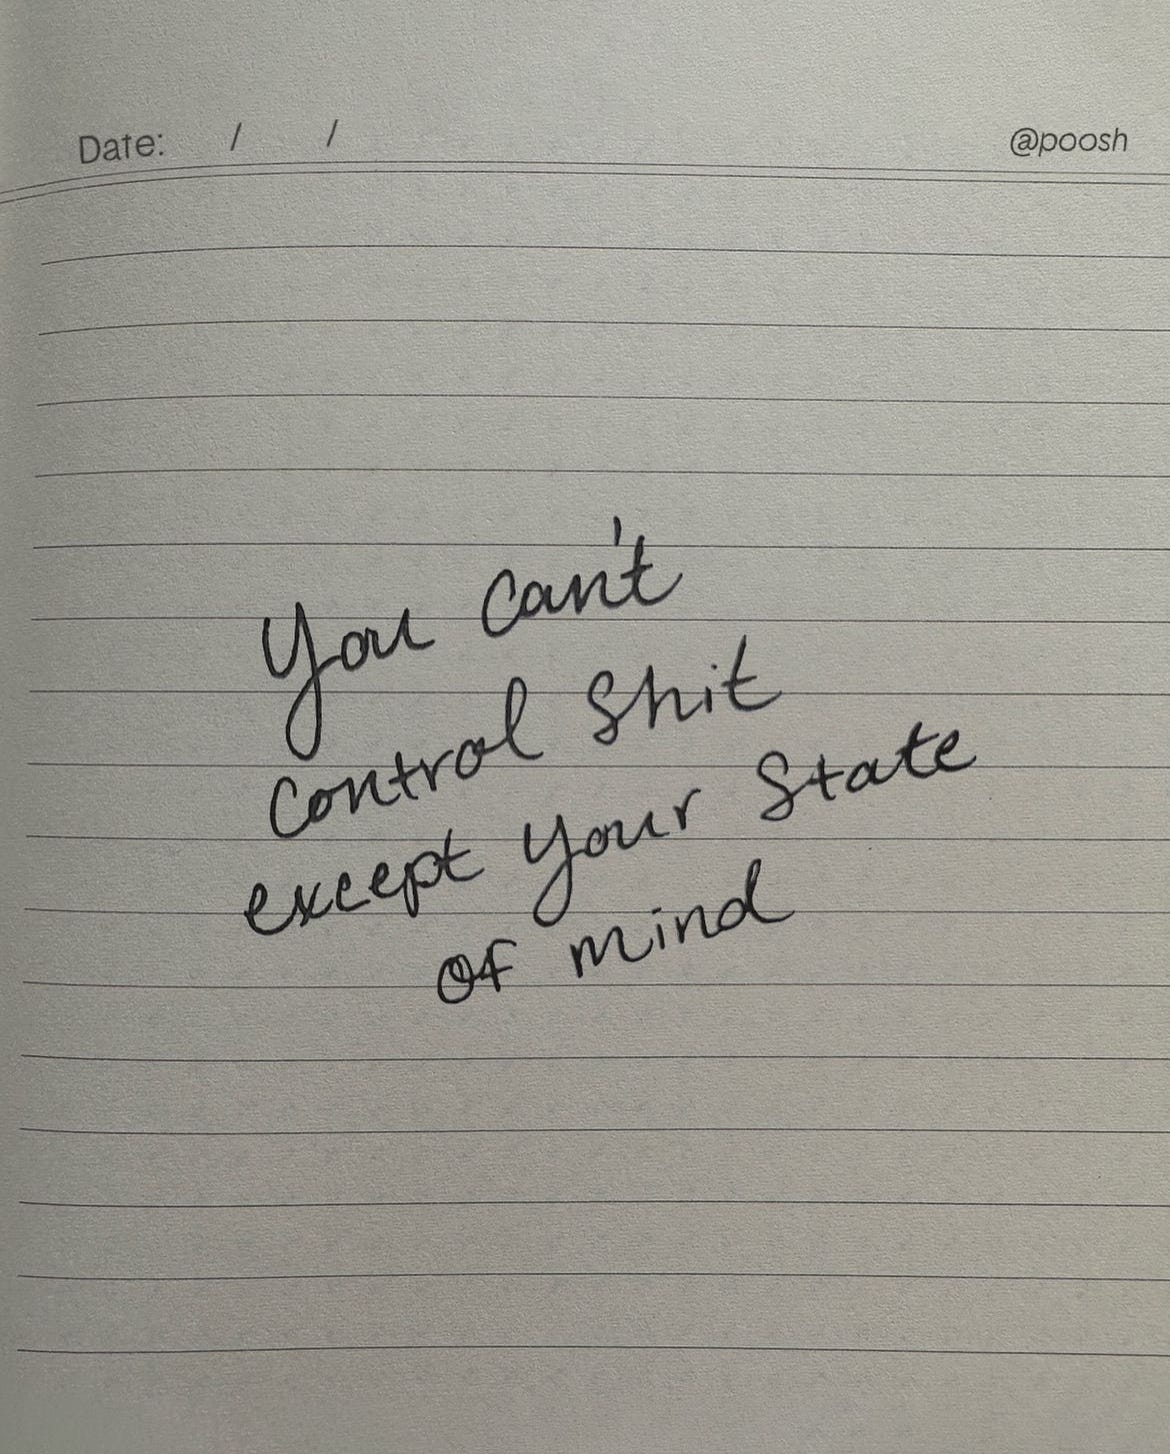 Date: / /
@poosh
You can't
control Shit
except your State
of mind